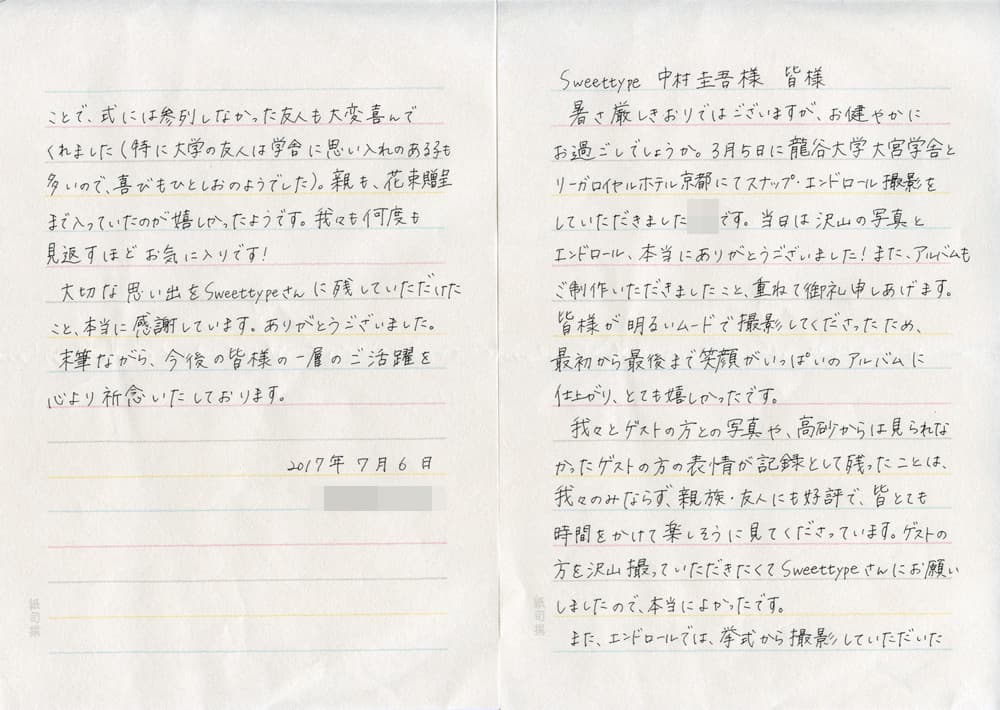 Sweettype 中村圭吾様 皆様
暑さ厳しきおりではございますが、お健やかに
お過ごしでしょうか。3月5日に龍谷大学大宮学舎と
リーガロイヤルホテル京都にてスナップ・エンドロール撮影を
していただきました です。当日は沢山の写真と
エンドロール、本当にありがとうございました!また、アルバムも
ご制作いただきましたこと、重ねて御礼申しあげます。
皆様が明るいムードで撮影してくださったため、
最初から最後まで笑顔がいっぱいのアルバムに
仕上がり、とても嬉しかったです。
我々とゲストの方との写真や、高砂からは見られな
かったゲストの方の表情が記録として残ったことは、
我々のみならず、親族・友人にも好評で、皆とても
時間をかけて楽しそうに見てくださっています。ゲストの
方を沢山撮っていただきたくてSweettypeさんにお願い
しましたので、本当によかったです。
また、エンドロールでは、挙式から撮影していただいた
ことで、式には参列しなかった友人も大変喜んで
くれました(特に大学の友人は学舎に思い入れのある子も
多いので、喜びもひとしおのようでした)。親も、花束贈呈
まで入っていたのが嬉しかったようです。我々も何度も
見返すほどお気に入りです!
大切な思い出をSweettypeさんに残していただけた
こと、本当に感謝しています。ありがとうございました。
末筆ながら、今後の皆様の一層のご活躍を
心より祈念いたしております。
2017年7月6日
紙司撰
紙司撰